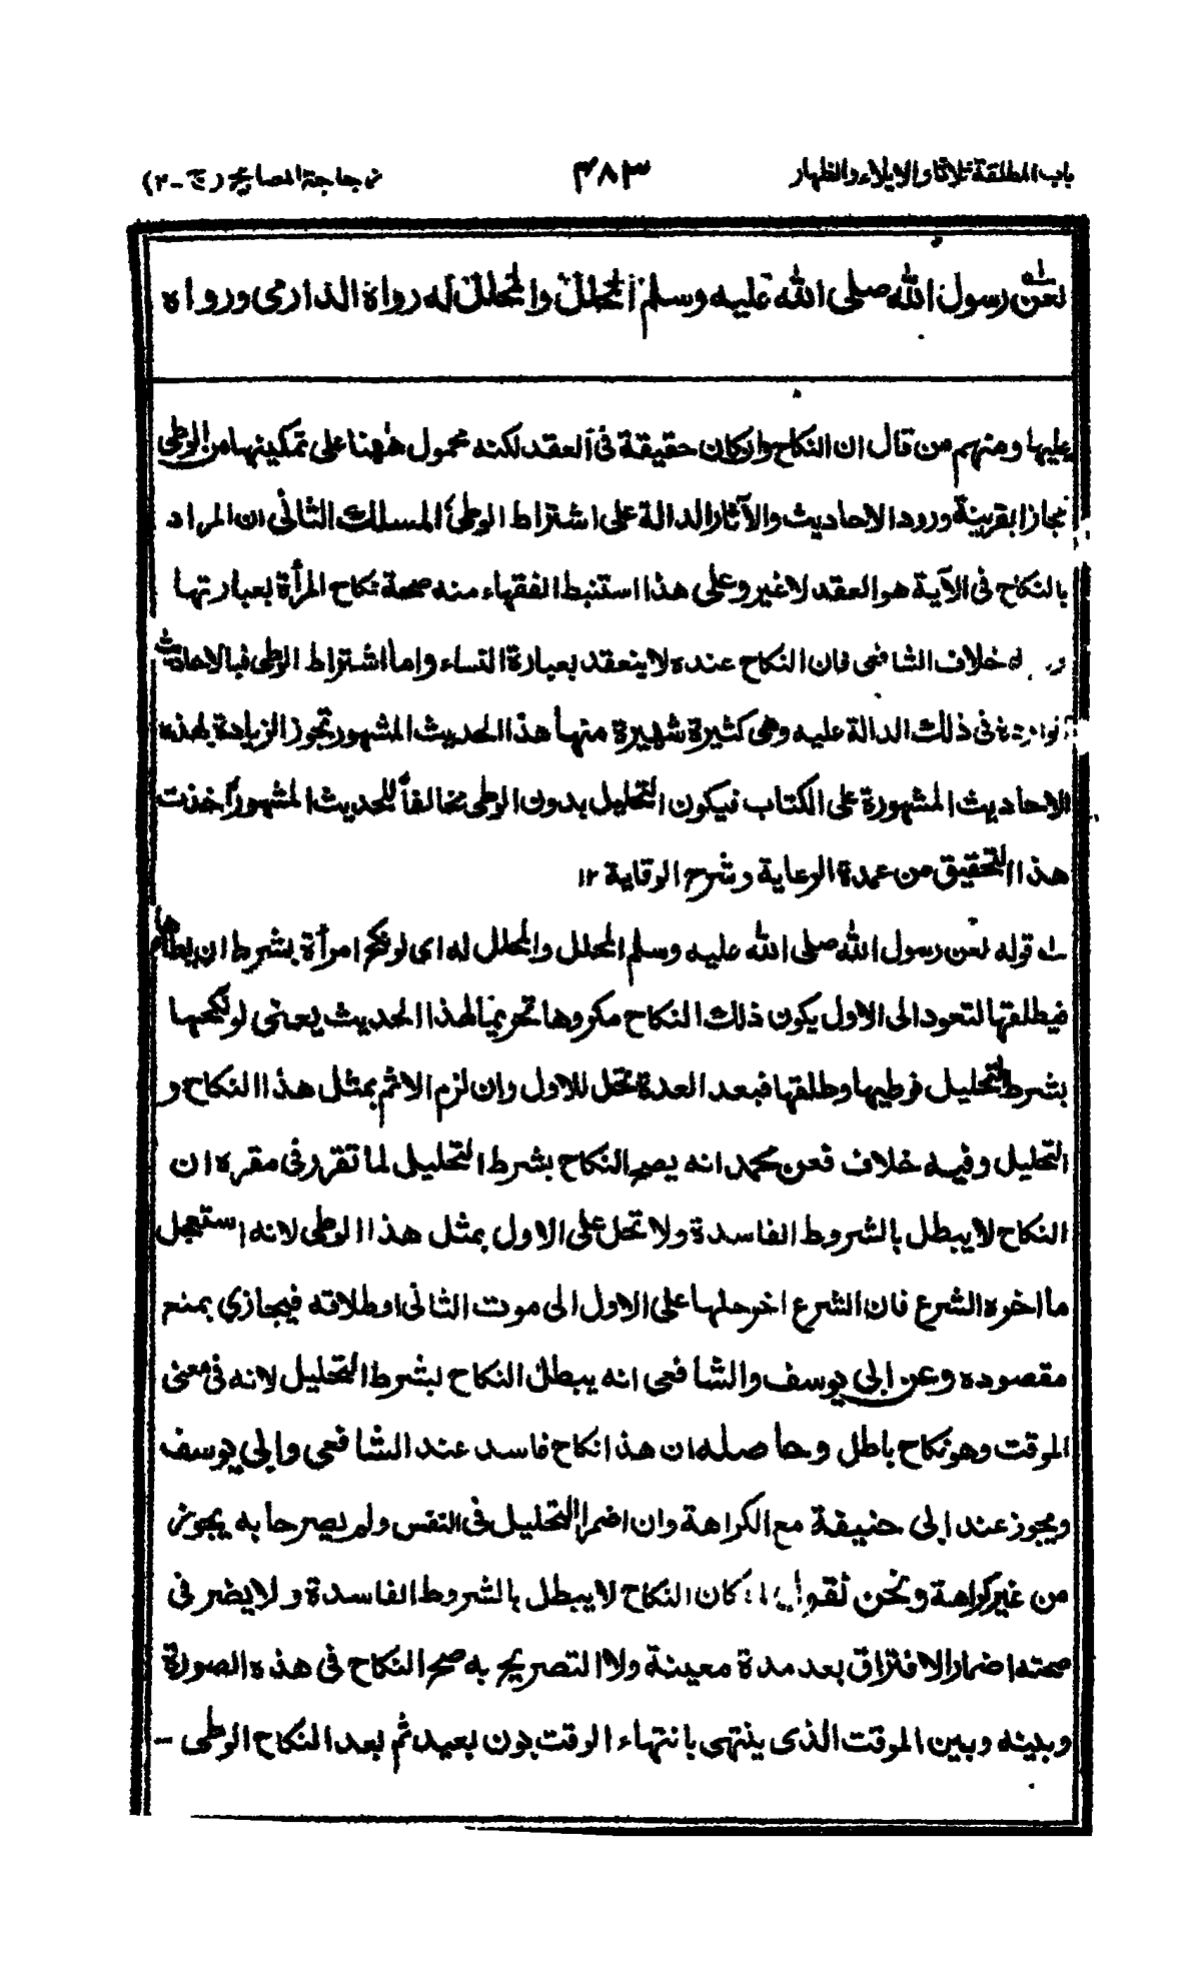 باب المطلقة ثلاثا والايلاء والظهار ٤٨٣ زجاجة المصابيح (ج-٢)
لعن رسول الله صلى الله عليه وسلم المحلل والمحلل له رواه الدارمى ورواه
عليها ومنهم من قال ان النكاح وان كان حقيقة فى العقد لكنه محمول ههنا على تمكينها من الوطى
مجازا بقرينة ورود الاحاديث والآثار الدالة على اشتراط الوطى المسلك الثانى ان المراد
بالنكاح فى الآية هو العقد لا غير وعلى هذا استنبط الفقهاء منه صحة نكاح المرأة بعبارتها
خلاف الشافعى فان النكاح عنده لا ينعقد بعبارة النساء واما اشتراط الوطى فبالاحاديث
الواردة فى ذلك الدالة عليه وهى كثيرة شهيرة منها هذا الحديث المشهور تجوز الزيادة بهذه
الاحاديث المشهورة على الكتاب فيكون التحليل بدون الوطى مخالفا للحديث المشهور اخذت
هذا التحقيق من عمدة الرعاية وشرح الوقاية ١٢
قوله لعن رسول الله صلى الله عليه وسلم المحلل والمحلل له اى لو نكح امرأة بشرط ان يطأها
فيطلقها لتعود الى الاول يكون ذلك النكاح مكروها تحريما لهذا الحديث يعنى لو نكحها
بشرط التحليل فوطيها وطلقها فبعد العدة تحل للاول وان لزم الاثم بمثل هذا النكاح و
التحليل وفيه خلاف فعن محمد انه يصح النكاح بشرط التحليل لما تقرر فى مقره ان
النكاح لا يبطل بالشروط الفاسدة ولا تحل على الاول بمثل هذا الوطى لانه استعجل
ما اخره الشرع فان الشرع اخر حلها على الاول الى موت الثانى او طلاقه فيجازى بمنع
مقصوده وعن ابى يوسف والشافعى انه يبطل النكاح بشرط التحليل لانه فى معنى
الموقت وهو نكاح باطل وحاصله ان هذا نكاح فاسد عند الشافعى وابى يوسف
ويجوز عند ابى حنيفة مع الكراهة وان اضمرا التحليل فى النفس ولم يصرحا به يجوز
من غير كراهة ونحن نقول كان النكاح لا يبطل بالشروط الفاسدة ولا يضر فى
صحته اضمار الافتراق بعد مدة معينة ولا التصريح به صح النكاح فى هذه الصورة
وبينه وبين الموقت الذى ينتهى بانتهاء الوقت بون بعيد ثم بعد النكاح الوطى -